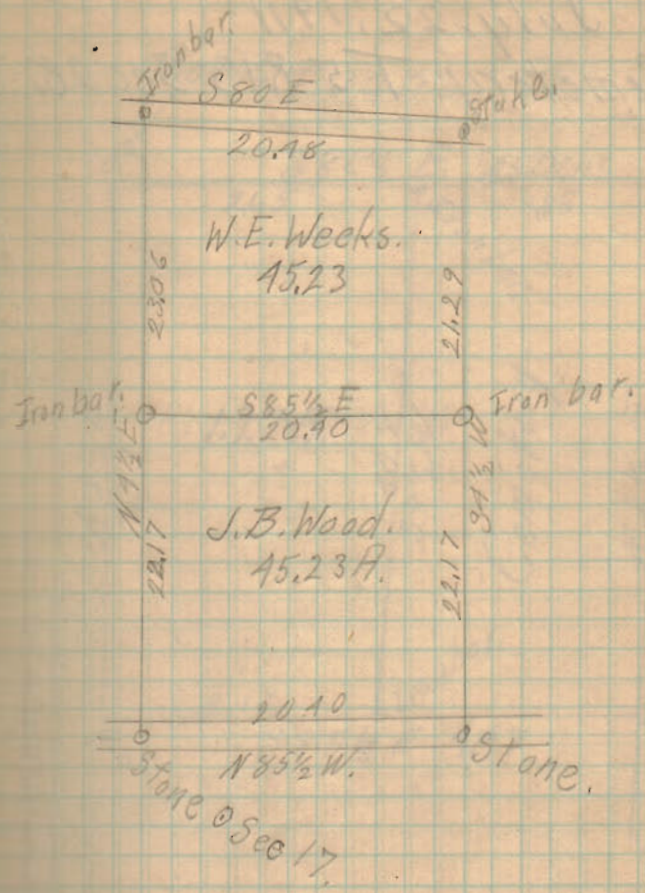 Iron bar.
S 80 E
Stake.
20.48
W.E. Weeks.
45.23
23.06
21.29
Iron bar.
S 85½ E
Iron bar.
20.40
N 4½ E
S 4½ W
J.B. Wood.
45.23 A.
22.17
22.17
20.40
N 85½ W.
Stone
Stone.
Sec 17